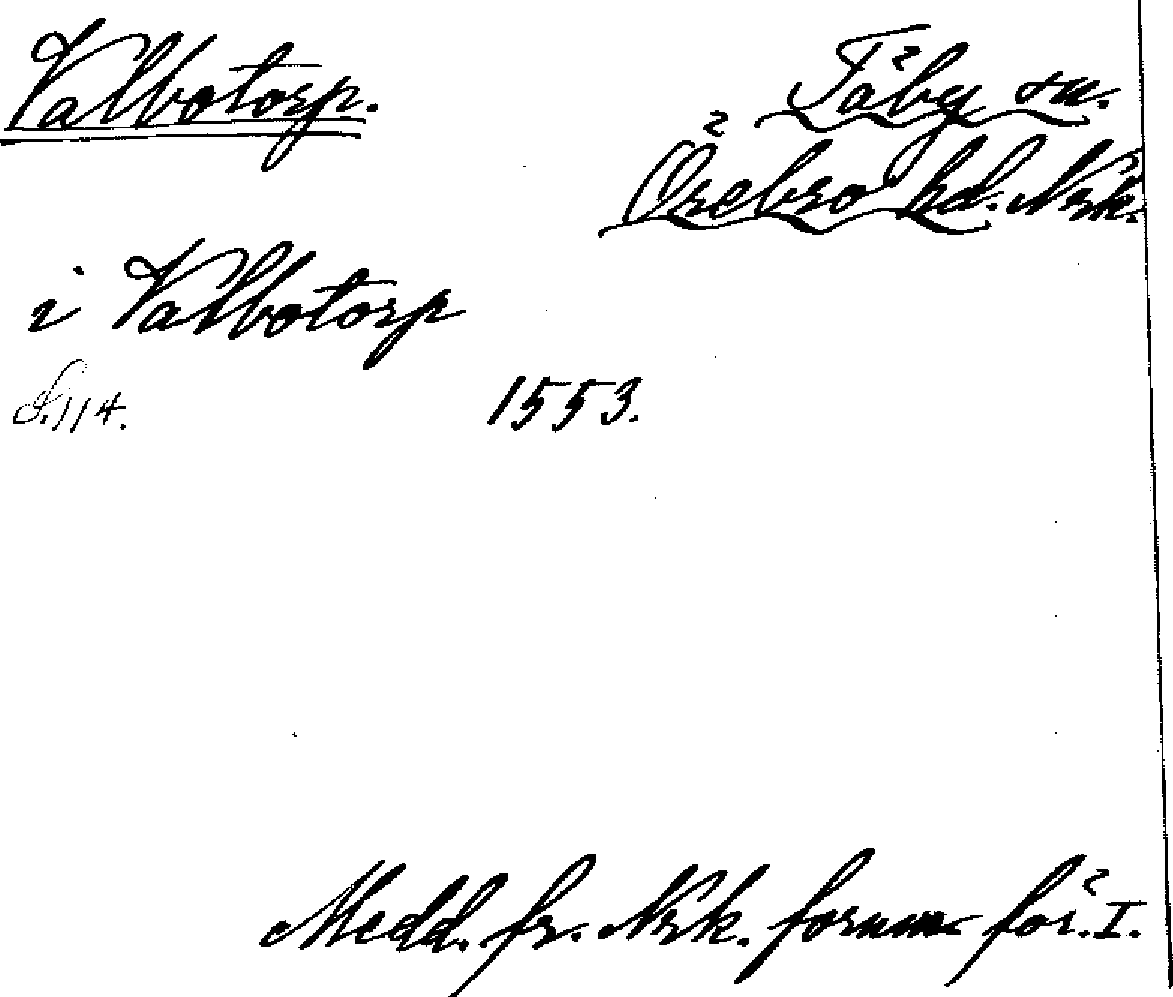 Valbotorp.
Täby sn.
Örebro hd. Nrk.
i Valbotorp
S. 114.
1553.
Medd. fr. Nrk. fornm. för. I.